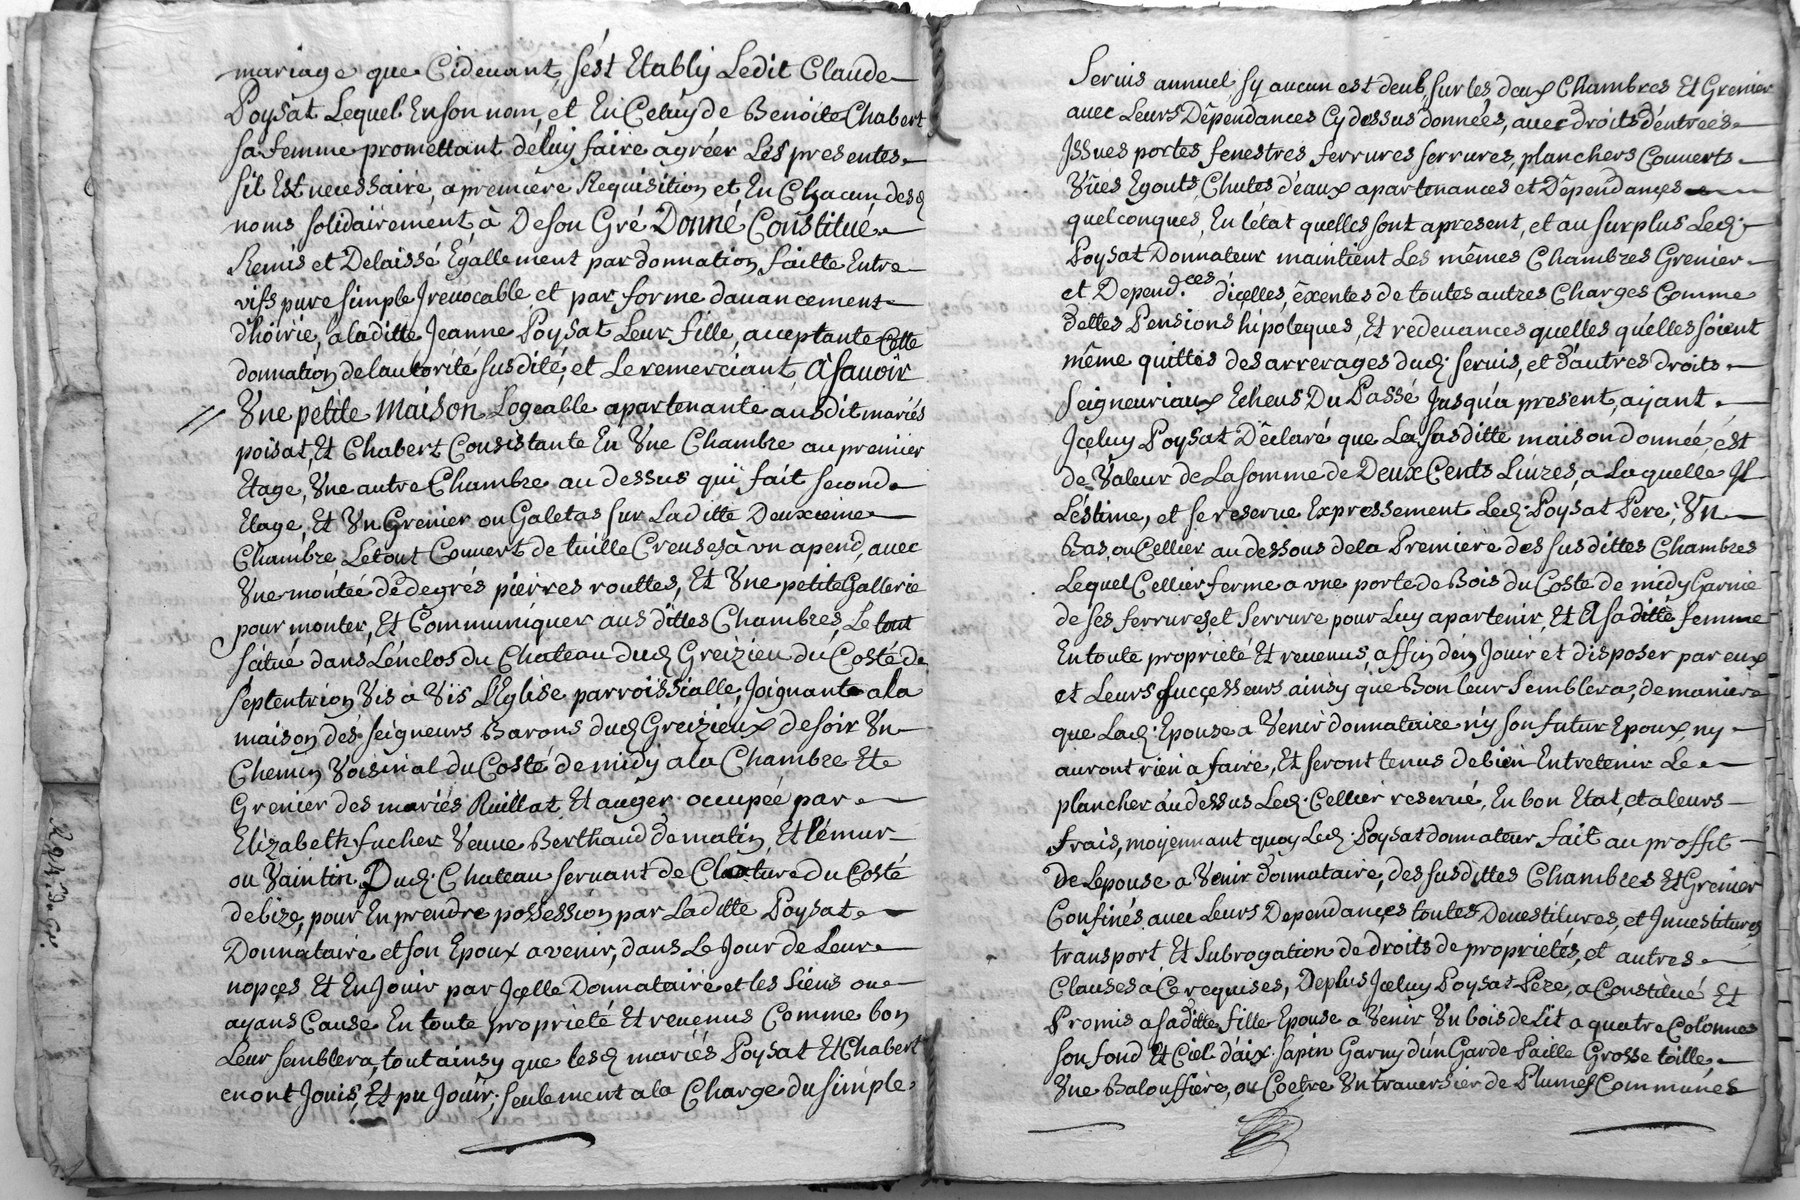 mariage que Cideuant, sést Etably Ledit Claude
Poysat Lequel Enson nom, et En Celuy de Benoite Chabert
sa femme promettant déluy faire agréer Les presentes
sil Est necessaire, a premiere Requisition et En Chacun desd
noms solidairement à Deson Gré Donné Constitué
Remis et Delaissé Egallement par donnation faitte Entre
vifs pure simple Jrreuocable et par forme dauancement
dhoirie, a laditte Jeanne Poysat Leur fille, acceptante Cette
donnation delautorité susdité, et Le remerciant, Asauoir
Vne petite Maison Logeable apartenante ausdit mariés
poisat, Et Chabert Consistante En Vne Chambre au premier
Etage, Vne autre Chambre au dessus qui fait second
Etage, Et Vn Grenier ou Galetas sur Laditte Deuxieme
Chambre Letout Couvert de tuille Creuses à vn apend, avec
Vne montée dedegrés pierres routtes, Et Vne petite Gallerie
pour monter, Et Communiquer ausdittes Chambres, Le tout
situé dans Lénclos du Chateau dud Greizieu du Costé de
septentrion Vis à Vis LEglise parroissialle, Joignant a la
maison dés seigneurs Barons dud Greizieux desoir Vn
Chemin Voisinal du Costé de midy a la Chambre Et
Grenier des mariés Ruillat Et auger occupée par
Elizabeth fucher Veuue Berthaud dematin, Et lémur
ou Vaintin Dud. Chateau seruant de Cloature du Costé
debize, pour En prendre possession par Laditte Poysat
Donnataire et son Epoux avenir, dans Le Jour de Leur
nopces Et En Jouir par Jcelle Donnataire et les Siens ou
ayans Cause En toute proprieté Et reuenus Comme bon
Leur semblera, tout ainsy que lesd mariés Poysat Et Chabert
enont Jouis, Et pu Jouir, seulement a la Charge du simple
R 94. 73. Gr.
Seruis annuel, sy aucun est deub, sur les deux Chambres Et Grenier
auec Leurs Dépendances Cy dessus données, auec droits dentreés
Jssues portes fenestres ferrures serrures, planchers Couverts
Vües Egouts, Chutes deaux apartenances et Dépendançes
quelconques, En létat quelles sont apresent, et au surplus Led.
Poysat Donnateur maintient Les mêmes Chambres Grenier
et Depend.ces dicelles, éxentes de toutes autres Charges Comme
dettes Pensions hipoteques, Et redeuances quelles quélles soient
même quittes des arrerages dud. seruis, et dautres droits
Seigneuriaux Echeus Du Passé Jusqu'a present, ajant
Jceluy Poysat Déclaré que La susditte maison donnée, ést
de Valeur de La somme de Deux Cents Liures, a Laquelle Jl
Léstime, et se reserue Expressement Led. Poysat Pere, Vn
Bas, ou Cellier au dessous dela Premiere des susdittes Chambres
Lequel Cellier ferme a vne porte de Bois du Costé de midy Garnie
de ses ferrures, et Serrure pour Luy apartenir, Et A sa ditté femme
En toute proprieté Et reuenus, affin dén Jouir et disposer par eux
et Leurs succcesseurs ainsy que Bon leur semblera, de maniere
que Lad. Epouse a Venir donnataire n'y son futur Epoux, ny
auront rien a faire, Et seront tenus debien Entretenir Le
plancher audessus Led. Cellier reserué, En bon Etat, et aleurs
frais, moyennant quoy Led. Poysat donnateur fait au proffit
De Lepouse a Venir Donnataire, des susdittes Chambres Et Grenier
Confinés auec Leurs Dependançes toutes Deuestitures, et Jnuestitures
transport Et Subrogation de droits de proprietés, et autres
Clauses a Ce requises, Deplus Jceluy Poysat Pere, a Constitué Et
Promis a sa ditte fille Epouse a Venir Vn bois de Lit a quatre Colonnes
son fond Et Ciel daix sapin Garny dun Garde Paille Grosse toille
Vne Balouffiére, ou Coetre Vn trauersier de Plumes Communes